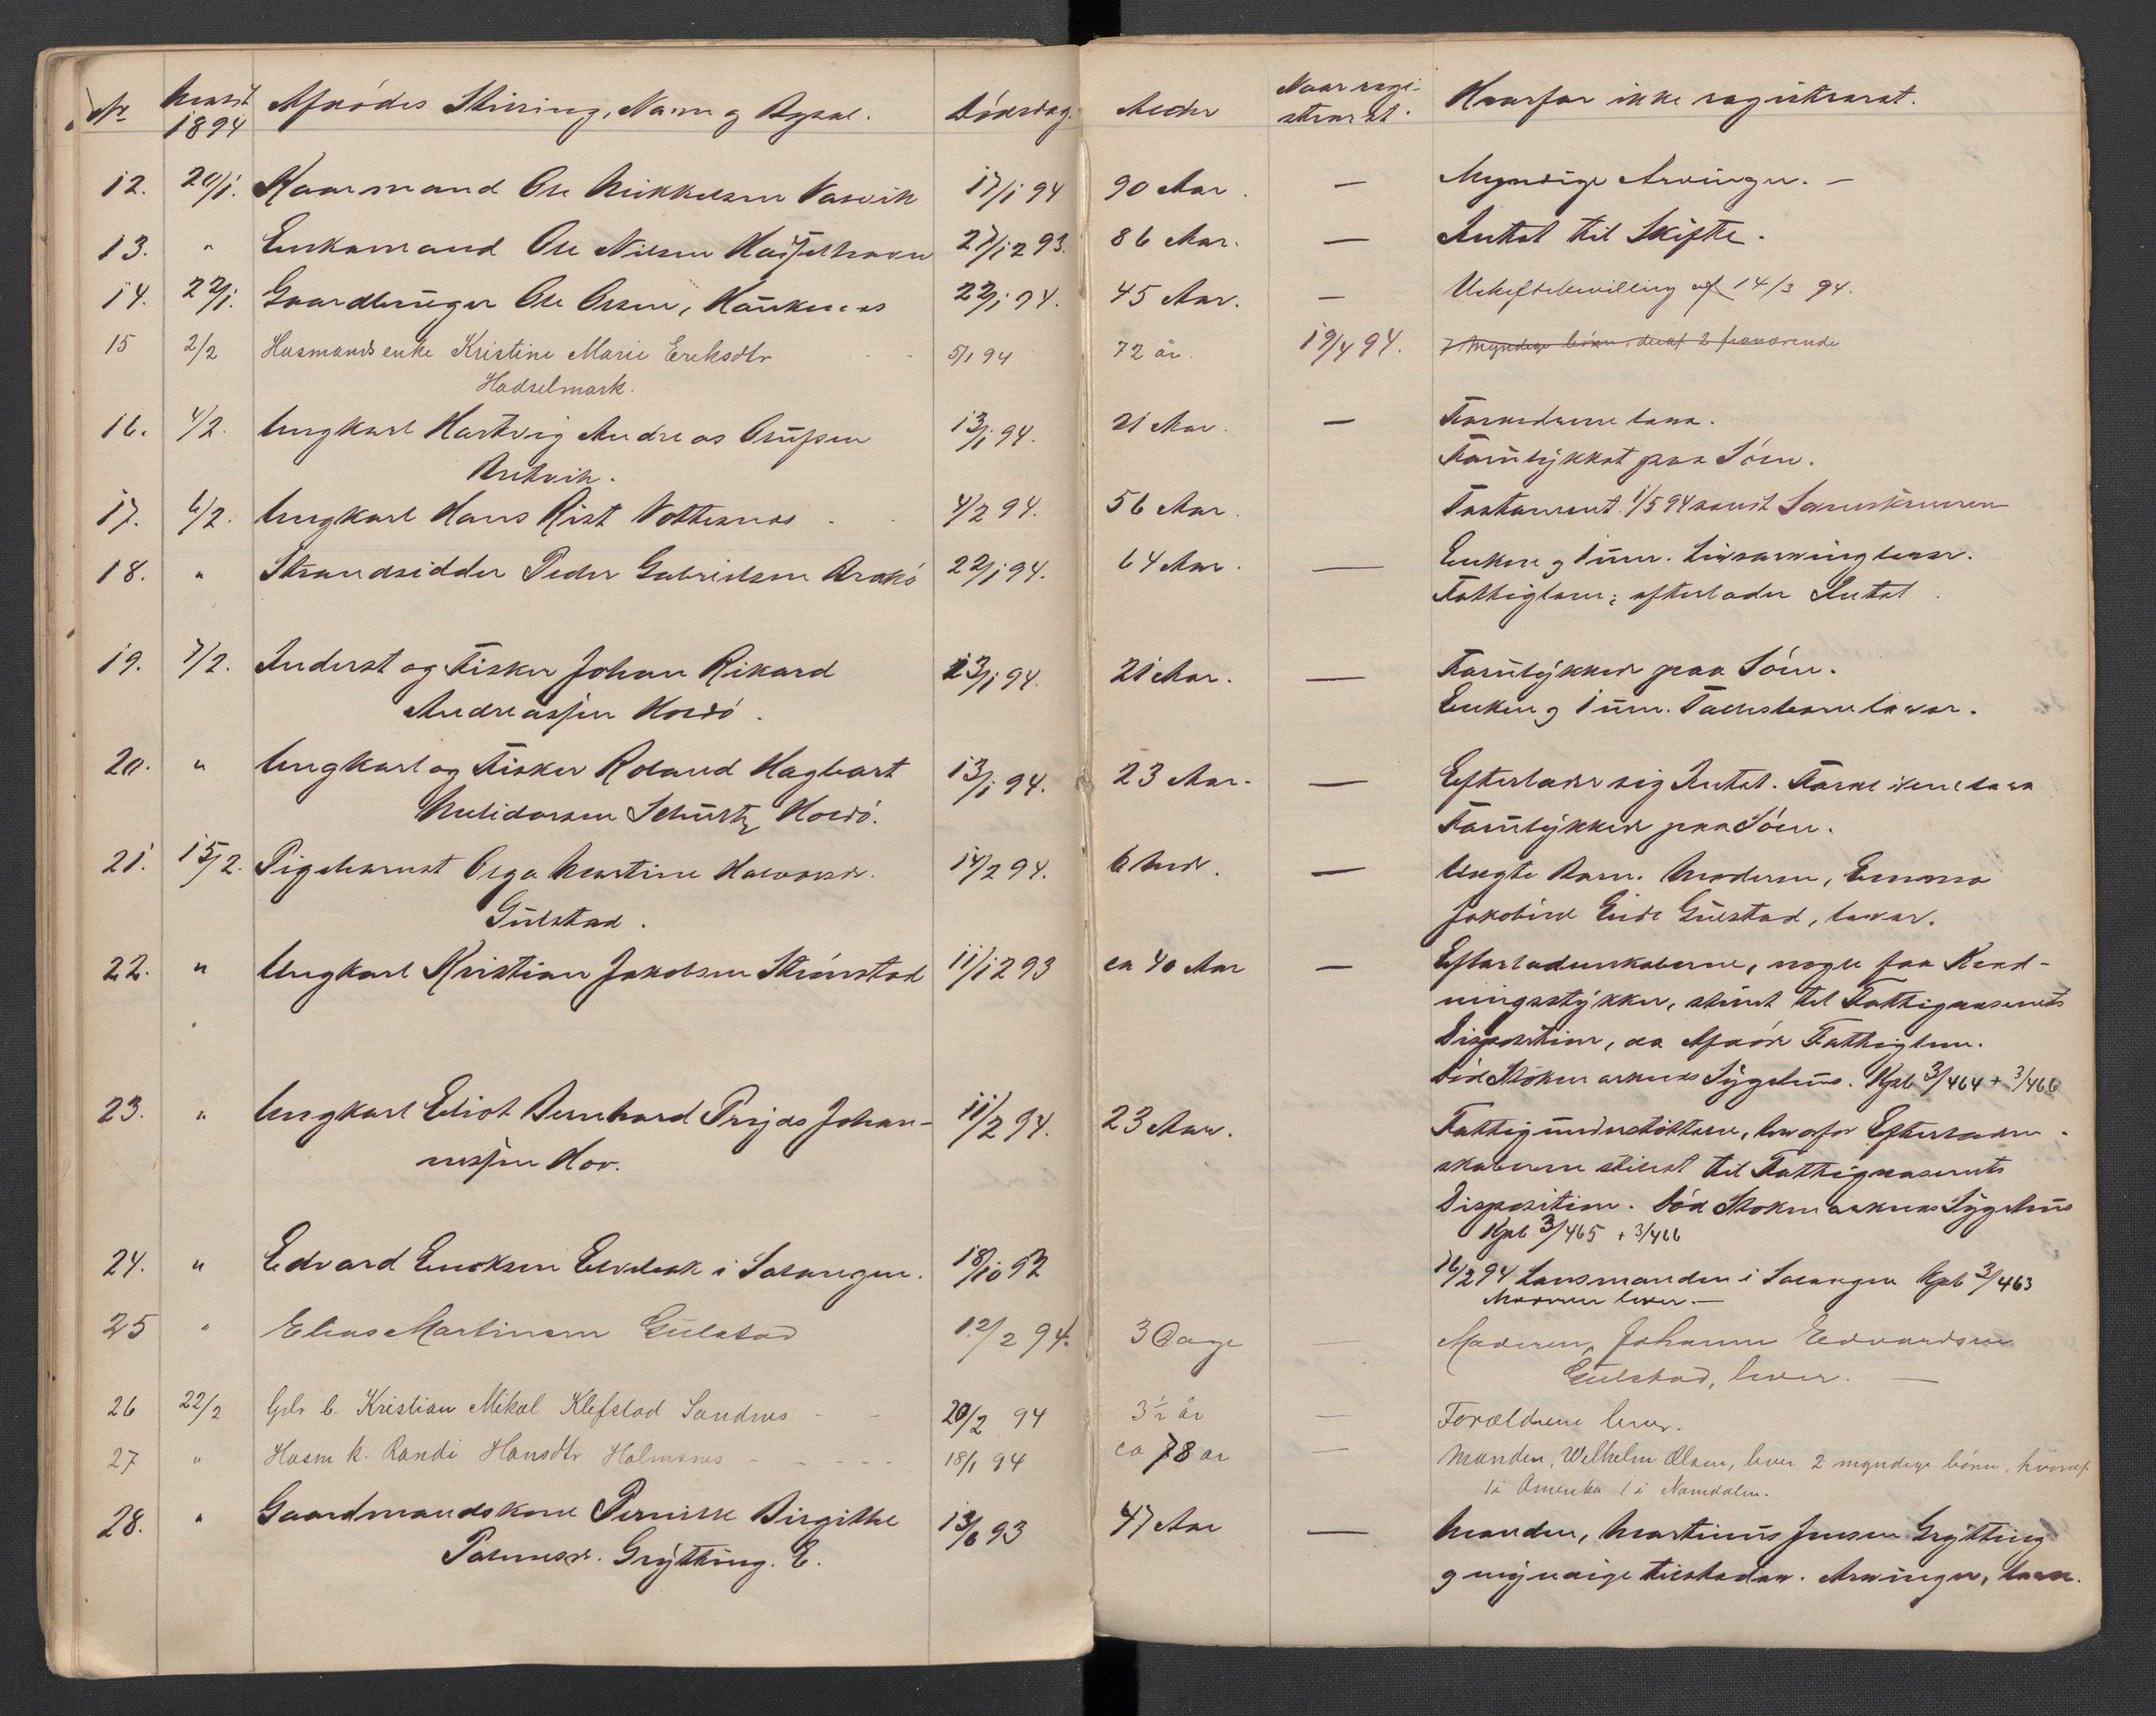 Nr Anmeldt 1894 Afdødes Stilling, Navn og Bopæl. Dødsdag. Alder Naar regi- Hvorfor ikke registreret.
streret.
12. 20/1. Kaarmand Ole Mikkelsen Vasvik 17/1 94 90 Aar. — Myndige Arvinger. —
13. " Enkemand Ole Nilsen Hadselhavn 27/12 93. 86 Aar. — Intet til Skifte.
14. 22/1. Gaardbruger Ole Olsen, Haukenes 22/1 94. 45 Aar. — Uskiftebevilling af 14/3 94.
15 2/2 Husmands enke Kristine Marie Eriksdtr 5/1 94 72 år. 19/4 94. 7 myndige børn, deraf 2 fraværende
Hadselmark.
16. 4/2. Ungkarl Hartvig Andreas Olufsen 13/1 94. 21 Aar. — Forældrene leve.
Brekvik. Forulykket paa Søen.
17. 6/2. Ungkarl Hans Rist Vottesnes 4/2 94. 56 Aar. Testament. 1/5 94 sendt Sorenskriveren
18. " Strandsidder Peder Gabrielsen Brokø 22/1 94. 64 Aar. — Enken og 1 um. Livsarving lever.
Fattiglem; efterlader Intet.
19. 7/2. Inderst og Fisker Johan Rikard 13/1 94. 21 Aar. — Forulykkede paa Søen.
Andreassen Holdø. Enken og 1 um. Fællesbarn lever.
20. " Ungkarl og Fisker Roland Hagbart 13/1 94. 23 Aar. — Efterlader sig Intet. Forældrene leve
Melidorsen Schultz Holdø. Forulykkede paa Søen.
21. 15/2. Pigebarnet Olga Martine Halvorsd. 14/2 94. 6 Mdr. — Uægte Barn. Moderen, Emma
Gulstad. Jakobine Eide Gulstad, lever.
22. " Ungkarl Kristian Jakobsen Strønstad 11/12 93 ca 40 Aar — Efterladenskaberne, nogle faa Klæd-
ningsstykker, stillet til Fattigvæsenets
Disposition, da Afdøde Fattiglem.
Død Stokmarknes Sygehus. Kpb 3/464 + 3/466
23. " Ungkarl Eliot Bernhard Prijds Johan- 11/2 94. 23 Aar. Fattigunderstøttede, hvorfor Efterladen-
nessen Hov. skaberne stillet til Fattigvæsenets
Disposition. Død Stokmarknes Sygehus
Kpb 3/465 + 3/466
24. " Edvard Enoksen Elvebak i Salangen. 18/10 92 16/2 94 Lensmanden i Salangen Kpb 3/463
Moderen lever. —
25 " Elias Martinsen Gulstad 12/2 94. 3 Dage — Moderen, Johanne Edvardsen
Gulstad, lever. —
26 22/2 Gdr b. Kristian Mikal Klefstad Sandnes - - 20/2 94 3½ år — Forældrene lever.
27 " Husm k. Randi Hansdtr Holmsnes - - - - - 18/1 94 ca 78 år — Manden, Wilhelm Olsen, lever 2 myndige børn, hvoraf
1 i Amerika 1 i Namdalen.
28. " Gaardmandskone Pernille Birgithe 13/6 93 47 Aar — Manden, Martinus Jensen Grytting
Palmesd. Grytting. E. og myndige tilstedev. Arvinger, leve.